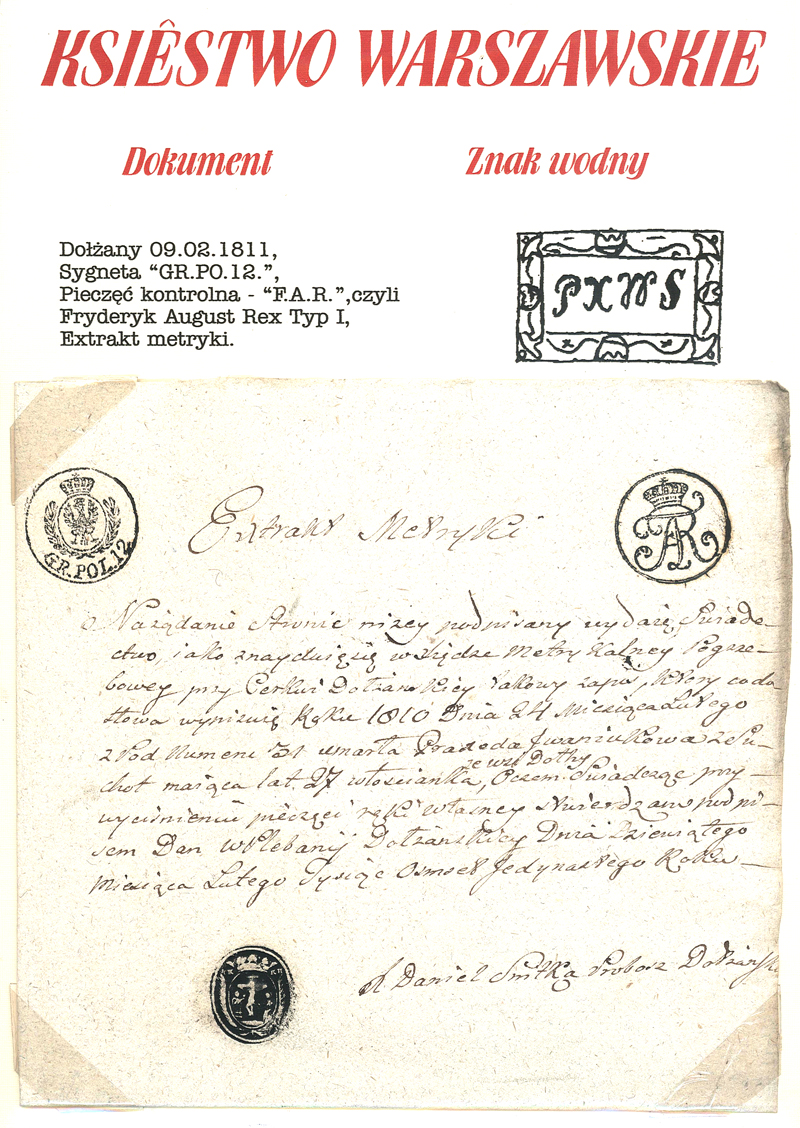 KSIÊSTWO WARSZAWSKIE
Dokument
Znak wodny
Dołżany 09.02.1811,
Sygneta “GR.PO.12.”,
Pieczęć kontrolna - “F.A.R.”,czyli
Fryderyk August Rex Typ I,
Extrakt metryki.
PXWS
GR.POL.12
FAR
Extrakt Metryki
Nażądanie Stronie niżey podpisany wydaię Swiade-
ctwo, jako znayduięsię w Xiędze Metrykalney Pogrze-
bowey przy Cerkwi Dołżanskiey takowy zapis, ktory coda
słowa wypisuię Roku 1810 Dnia 24 Miesiąca Lutego
zPod Numeru 31 umarła Iwaniukowa zSu-
chot maiąca lat 27 włoscianka, ze wsi Dołhy Oczem Swiadcząc przy-
wycisnieniu pieczęci ręki własney stwierdzam podpi-
sem Dan wPlebanij Dołżanskiey Dnia Dziewiątego
Miesiąca Lutego Tysiąc Osmset Jedynastego Roku
X Daniel Probosz Dołżański